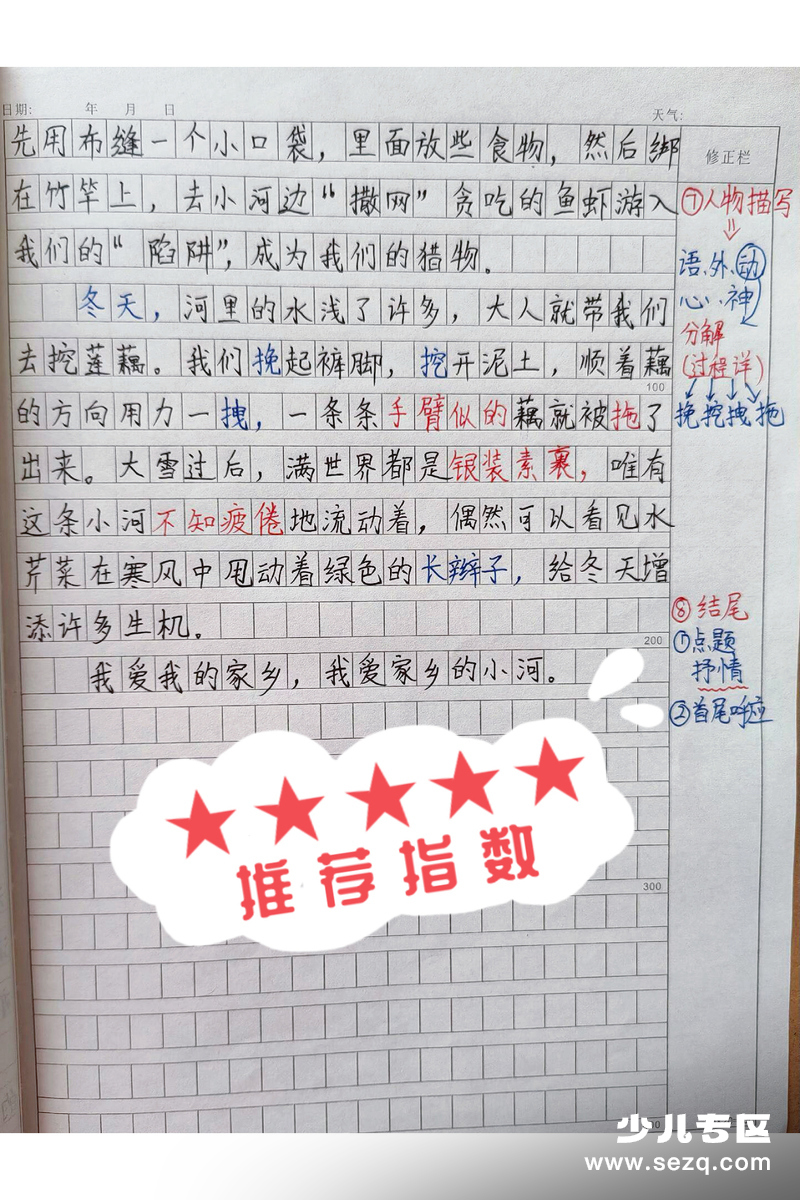 日期： 年 月 日 天气：
修正栏
先用布缝一个小口袋，里面放些食物，然后绑
在竹竿上，去小河边“撒网”贪吃的鱼虾游入
我们的“陷阱”，成为我们的猎物。
冬天，河里的水浅了许多，大人就带我们
去挖莲藕。我们挽起裤脚，挖开泥土，顺着藕
100
的方向用力一拽，一条条手臂似的藕就被拖了
出来。大雪过后，满世界都是银装素裹，唯有
这条小河不知疲倦地流动着，偶然可以看见水
芹菜在寒风中甩动着绿色的长辫子，给冬天增
添许多生机。
200
我爱我的家乡，我爱家乡的小河。
300
⑦人物描写
语、外、动
心、神
分解
(过程详)
挽挖拽拖
⑧结尾
①点题
抒情
②首尾呼应
推荐指数
少儿专区
www.sezq.com